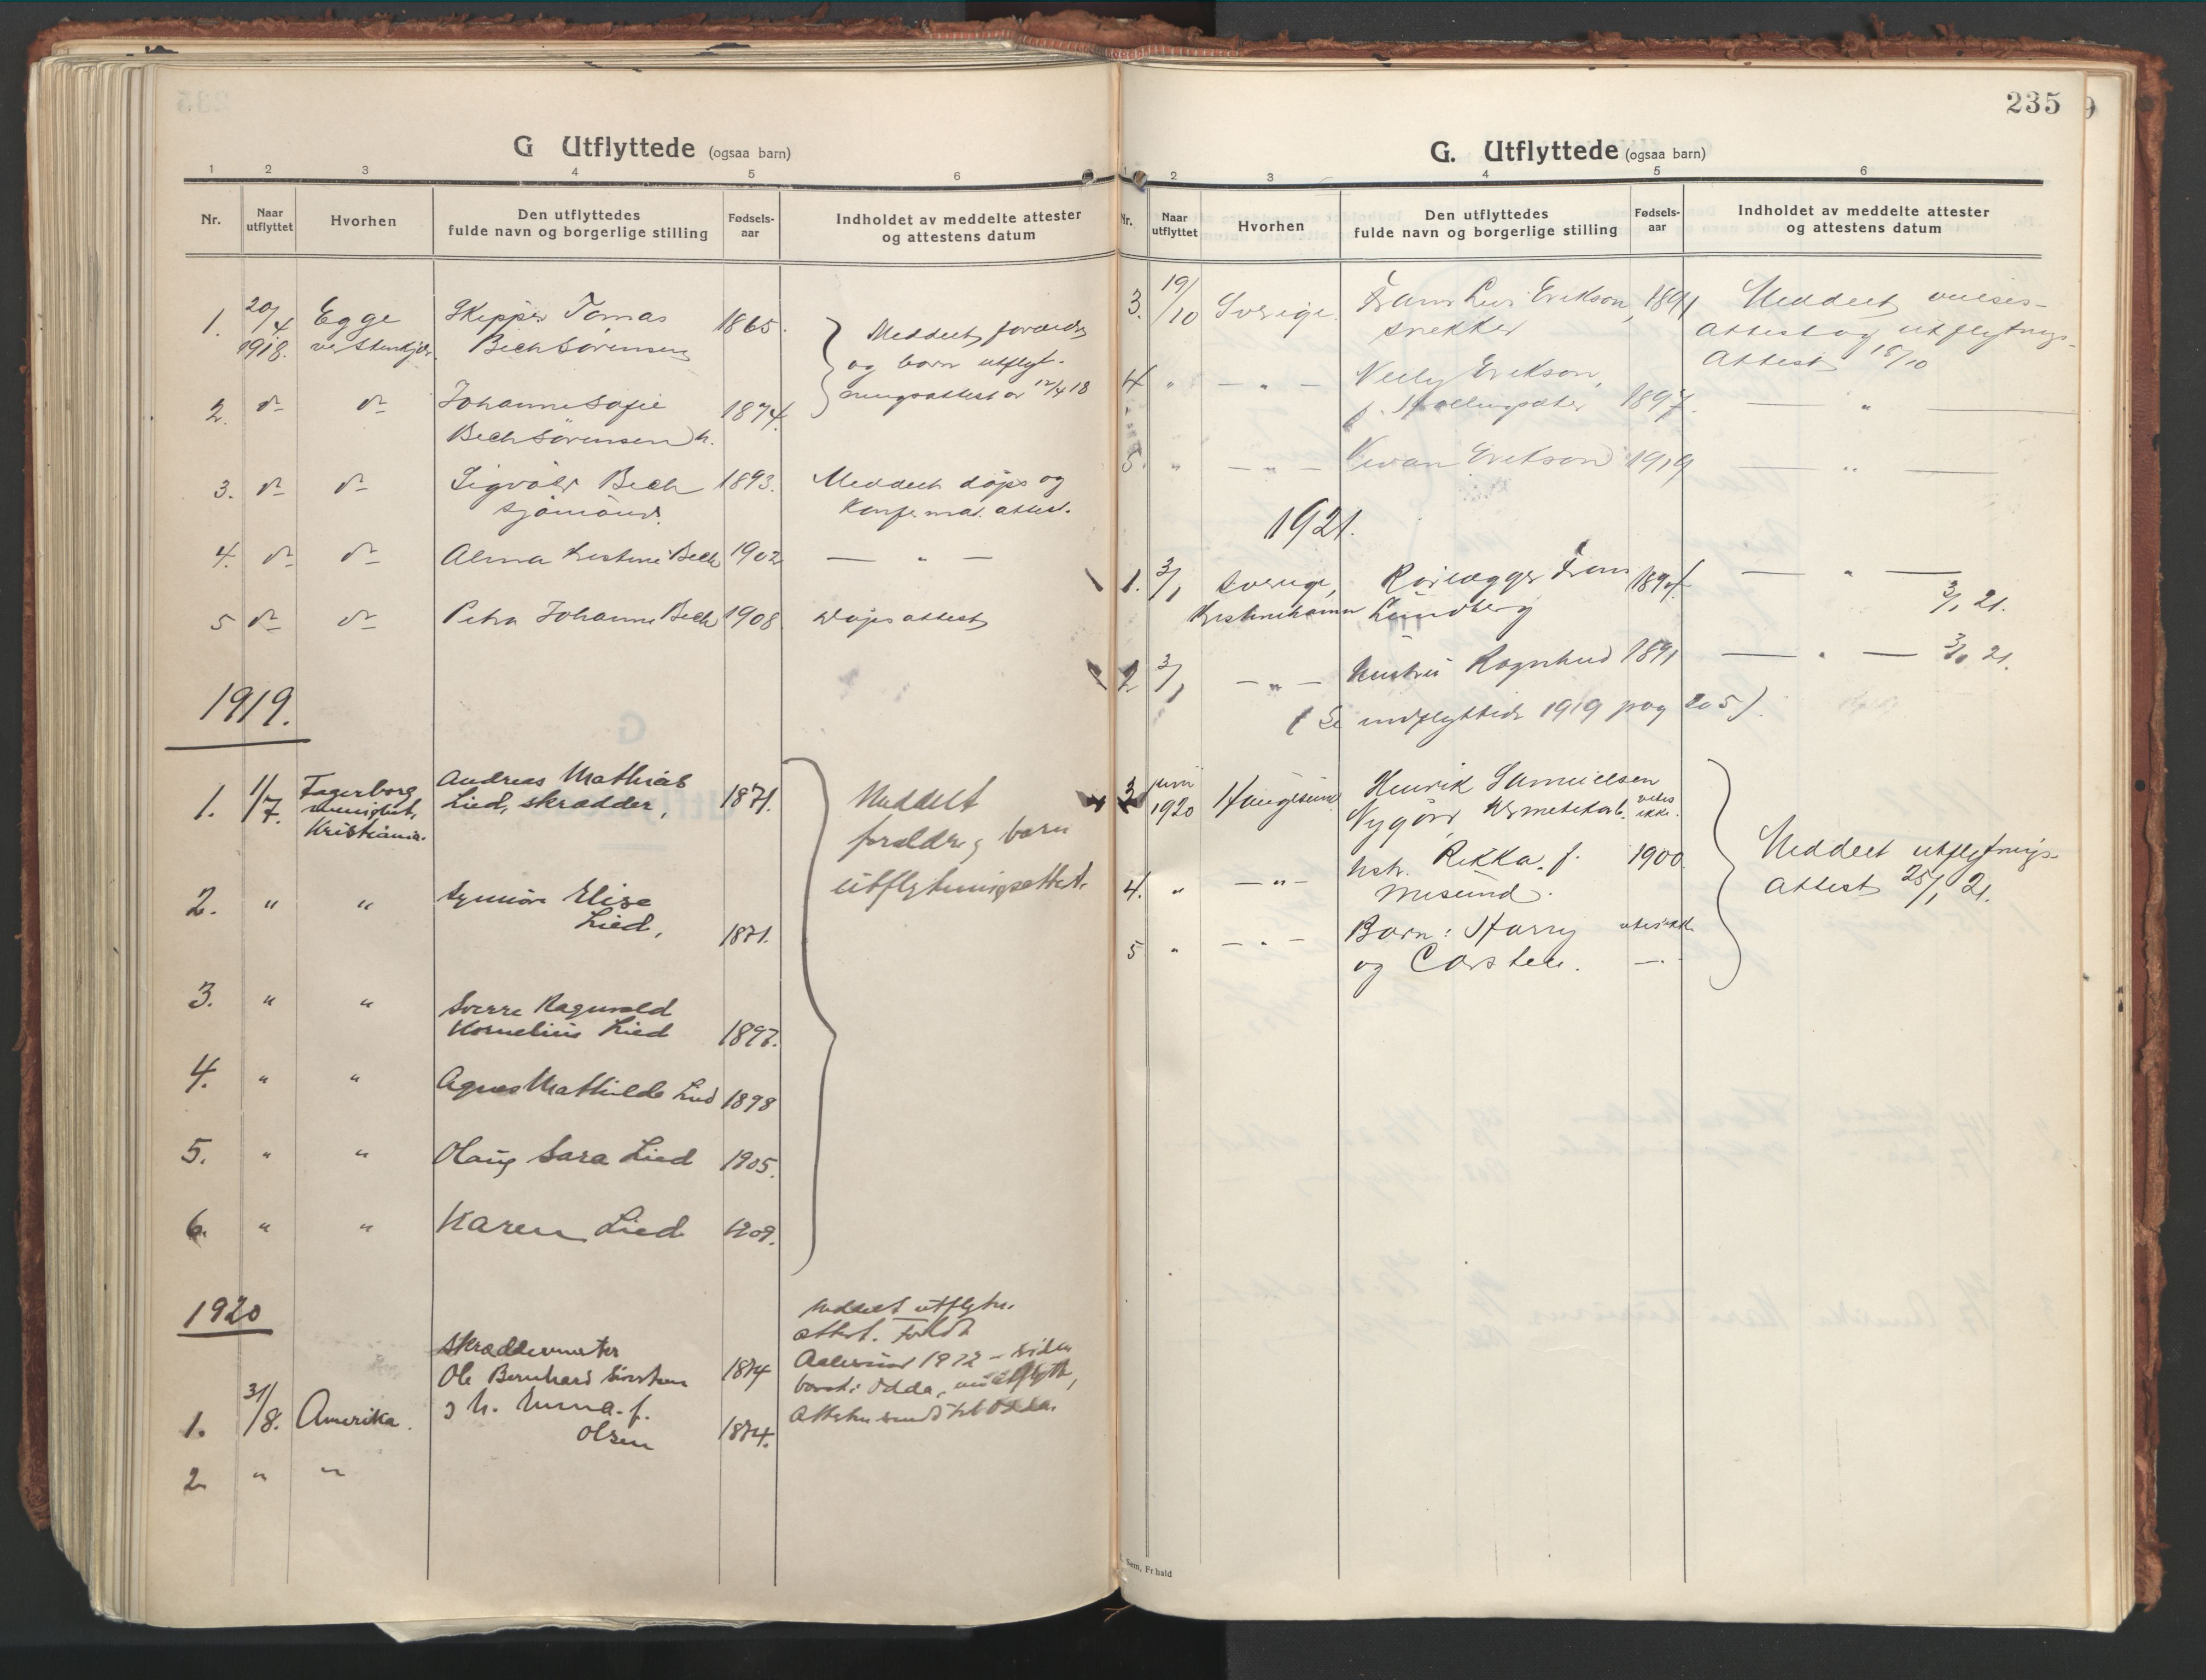 G Utflyttede (ogsaa barn)
1 2 3 4 5 6
Nr. Naar utflyttet Hvorhen Den utflyttedes fulde navn og borgerlige stilling Fødsels-aar Indholdet av meddelte attester og attestens datum
1. 20/4 1918. Egge Skipper Tomas 1865. Meddelt forældre
ved Stenkjær. Bech Sørensen og barn utflyt-
ningsattest av 12/4 18
2. do do Johanne Sofie 1874.
Bech Sørensen h.
3. do do Sigvald Bech 1893. Meddelt dåps og
sjømand. Konfirmat. attest.
4. do do Alma Kristine Bech 1902 — " —
5 do do Petra Johanne Bech 1908 Dåpsattest
1919.
1. 1/7. Fagerborg Andreas Mathias
menighet, Lied, skrædder, 1871. Meddelt
Kristiania. forældre og barn
utflytningsattest.
2. " " Elise
Lied, 1871.
3. " " Sverre Ragnvald
Kornelius Lied 1897.
4. " " Agnes Mathilde Lied 1898
5. " " Olaug Sara Lied 1905.
6. " " Karen Lied 1909.
1920
Meddelt utflytn.
attest. Født
Skræddermester Aalesund 1912 – siden
Ole Bernhard 1874 Odda,
1. 31/8. Amerika. h. f.
Olsen 1874.
2. " "
235
G. Utflyttede (ogsaa barn)
1 2 3 4 5 6
Nr. Naar utflyttet Hvorhen Den utflyttedes fulde navn og borgerlige stilling Fødsels-aar Indholdet av meddelte attester og attestens datum
3. 19/10 Sverige. Frans Erikson, 1891 Meddelt vielses-
snekker attest og utflytnings-
Attest 18/10
4 " — " — Nelly Erikson,
f. 1897. — " —
5. " — " — Erikson 1919 — " —
1921.
1. 3/1 Sverige, Rørlægger Frans 1894. — " —
Kristinehamn Lundberg 3/1 21.
2 3/1 — " — Hustru Ragnhild 1891 — " — 3/1 21.
(Se indflyttede 1919 pag 205).
3 juni 1920 Haugesund Henrik Samuelsen
Nygård, vites ikke.
4. " — " — hstr. Rikka f. 1900. Meddelt utflytnings-
Misund. Attest 25/1 21.
5 " — " — Barn: Harry vites ikke
og Carsten. — " —
Sem, Fr.hald